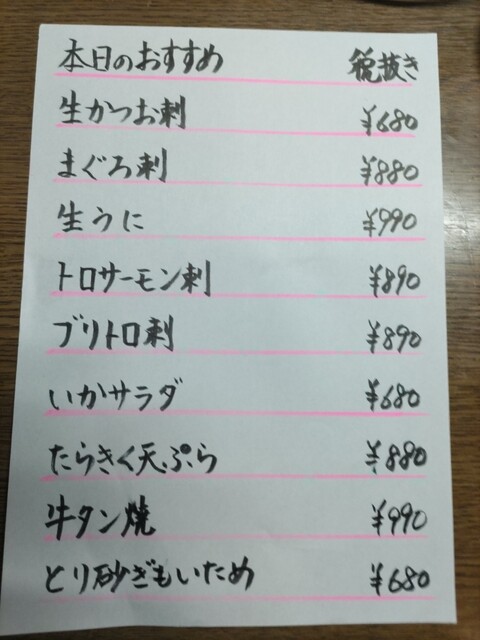 本日のおすすめ 税抜き
生かつお刺 ¥680
まぐろ刺 ¥880
生うに ¥990
トロサーモン刺 ¥890
ブリトロ刺 ¥890
いかサラダ ¥680
たらきく天ぷら ¥880
牛タン焼 ¥990
とり砂ぎもいため ¥680